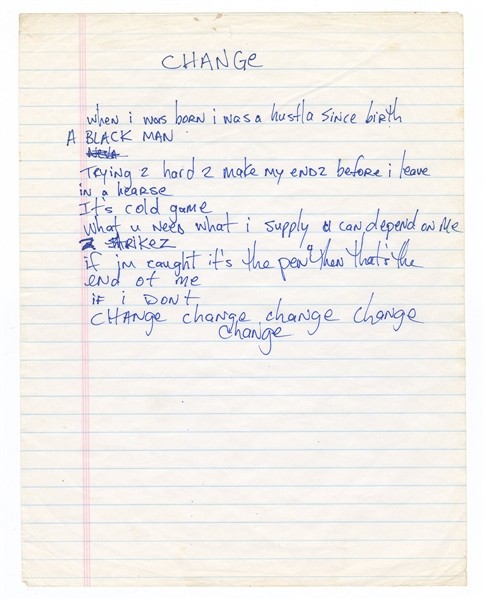 CHANGE
when i was born i was a hustla since birth
A BLACK MAN
TRYing 2 hard 2 make my endz before i leave
in a hearse
It's cold game
what u need what i supply u can depend on me
2 strikez
if im caught it's the pen" then that's the
end of me
IF i DONT
CHANGE change change change
change